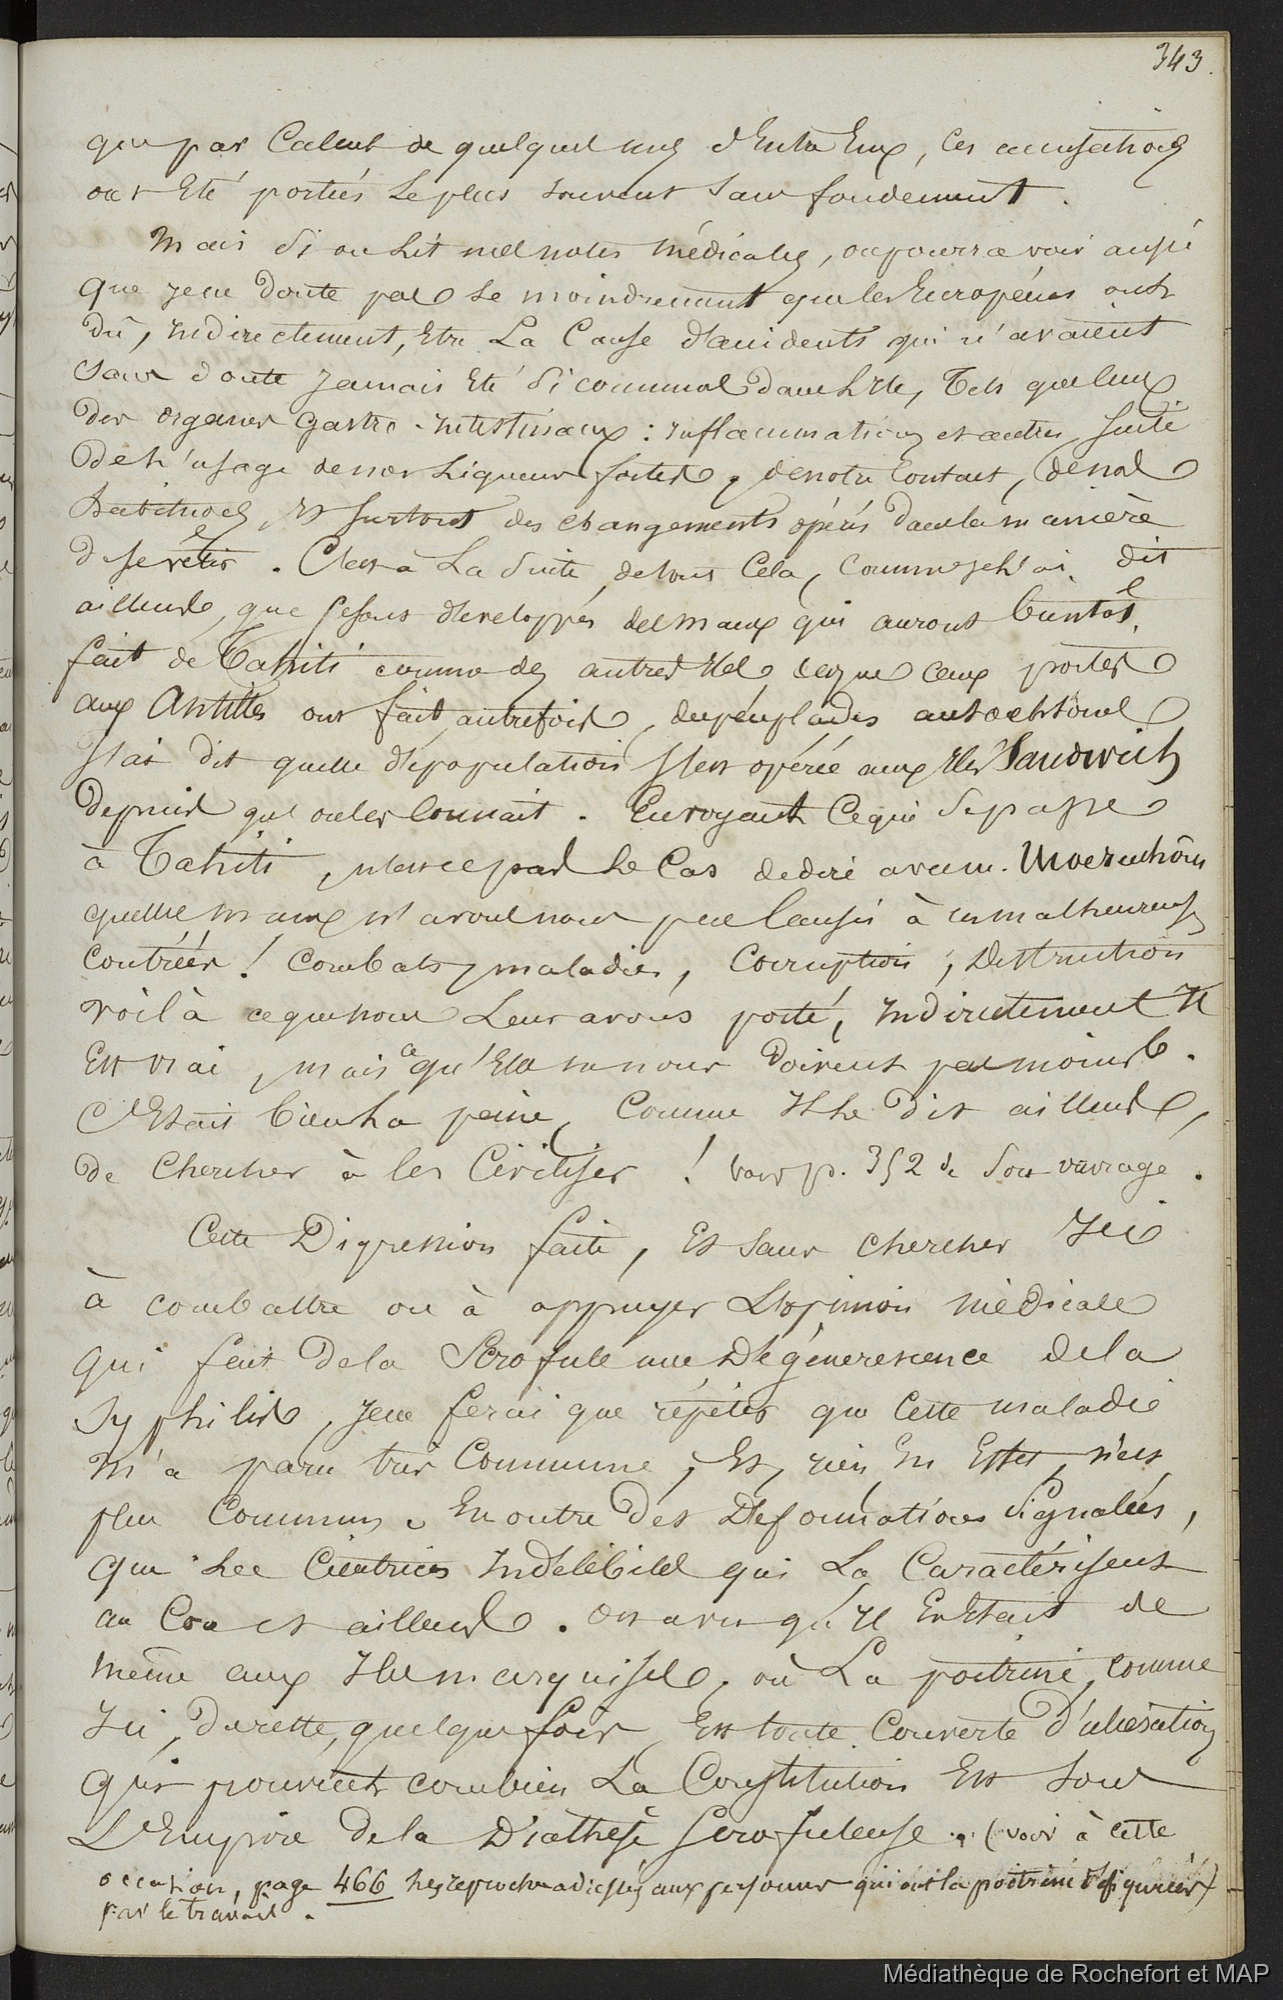 343.
que par Calcul de quelques uns d'Entre Eux, Ces accusations
ont Eté portées Le plus souvent sans fondement.
Mais Si on Lit mes notes médicales, on pourra voir aussi
que je ne doute pas Le moindrement que les Européens ont
dû, Indirectement, Etre La Cause d'accidents qui n'avaient
sans doute Jamais Eté Si communs dans L'Ile, Tels que ceux
des organes Gastro-Intestinaux : Inflammations et autres, Suite
de L'usage de nos Liqueurs fortes, de notre Contact, de nos
habitudes, Et surtout des changements opérés dans la manière
de se vêtir. C'est à La Suite de tout Cela, Comme je L'ai dit
ailleurs, que se sont développés des maux qui auront bientôt
fait de Tahiti comme des autres Iles, ce que ceux portés
aux Antilles ont fait autrefois, des peuplades autochtones
J'ai dit quelle dépopulation s'est opérée aux Iles Sandwich
depuis qu'on les Connait. En voyant Ce qui Se passe
à Tahiti, n'est ce pas Le Cas de dire avec M. Moerenhout
quels maux n'avons nous pas Causés à ces malheureuses
contrées ! Combats, maladies, Corruption, Destruction
voilà ce que nous Leur avons porté, Indirectement Il
Est vrai, mais ce qu'Elles ne nous doivent pas moins.
C'Etait bien La peine, Comme Il Le dit ailleurs,
de Chercher à les Civiliser ! voir p. 352 de Son ouvrage.
Cette Digression faite, Et Sans chercher Ici
à combattre ou à appuyer L'opinion médicale
qui fait de la Scrofule une Dégénerescence de la
Syphilis, Je ne ferai que répéter que Cette maladie
m'a paru très Commune, Et, rien En Effet, n'est
plus Commun, En outre des Déformations Signalées,
que Les Cicatrices Indélébiles qui La Caractérisent
au Cou et ailleurs. On a vu qu'Il En Etait de
même aux Iles marquises, où La poitrine, comme
Ici, du reste, quelque fois Est toute Couverte d'ulcérations
qui prouvent combien La Constitution Est Sous
L'Empire de la Diathèse Scrofuleuse. (voir à cette
occasion, page 466 les reproches adressés aux personnes qui ont la poitrine défigurée)
par le travail.
Médiathèque de Rochefort et MAP